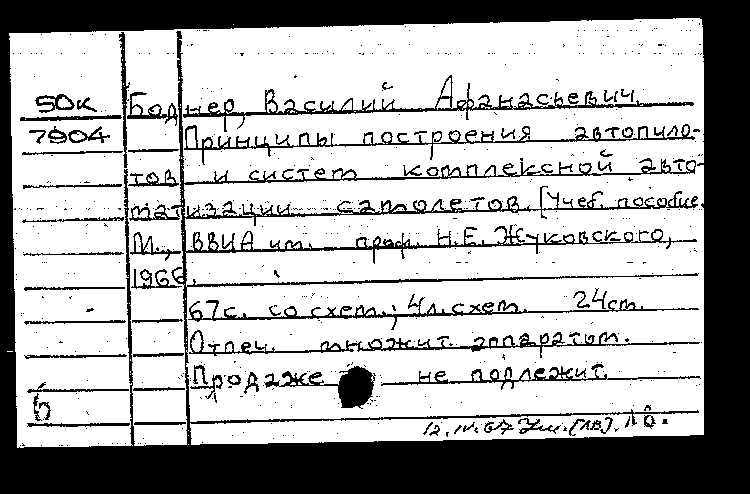 50к Боднер, Василий Афанасьевич.
7904 Принципы построения автопило-
тов и систем комплексной авто-
матизации самолетов. [Учеб. пособие.
М., ВВИА им. проф. Н.Е. Жуковского,
1966.
67с. со схем.; 4л. схем. 24см.
Отпеч. множит. аппаратом.
Продаже не подлежит.
б
12.IV.67